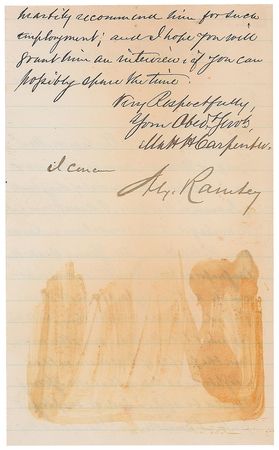 heartily recommend him for such
employment; and I hope you will
grant him an interview if you can
possibly spare the time.
Very Respectfully,
Your Obed. Servt,
Matt H Carpenter.
I concur
Alex. Ramsey